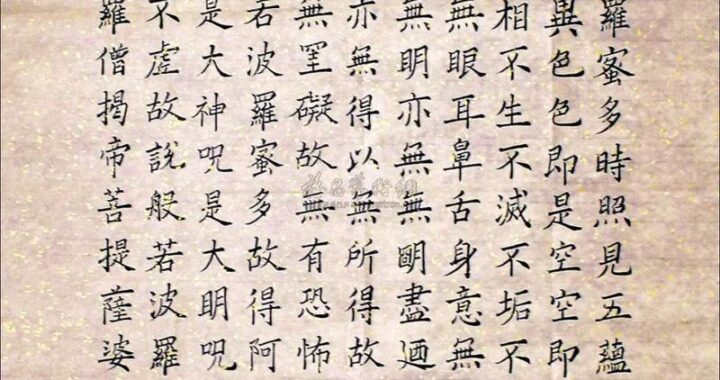 羅蜜多時照見五蘊
異色色即是空空即
相不生不滅不垢不
無眼耳鼻舌身意無
無明亦無無明盡迺
亦無得以無所得故
無罣礙故無有恐怖
若波羅蜜多故得阿
是大神咒是大明咒
不虛故說般若波羅
羅僧揭帝菩提薩婆